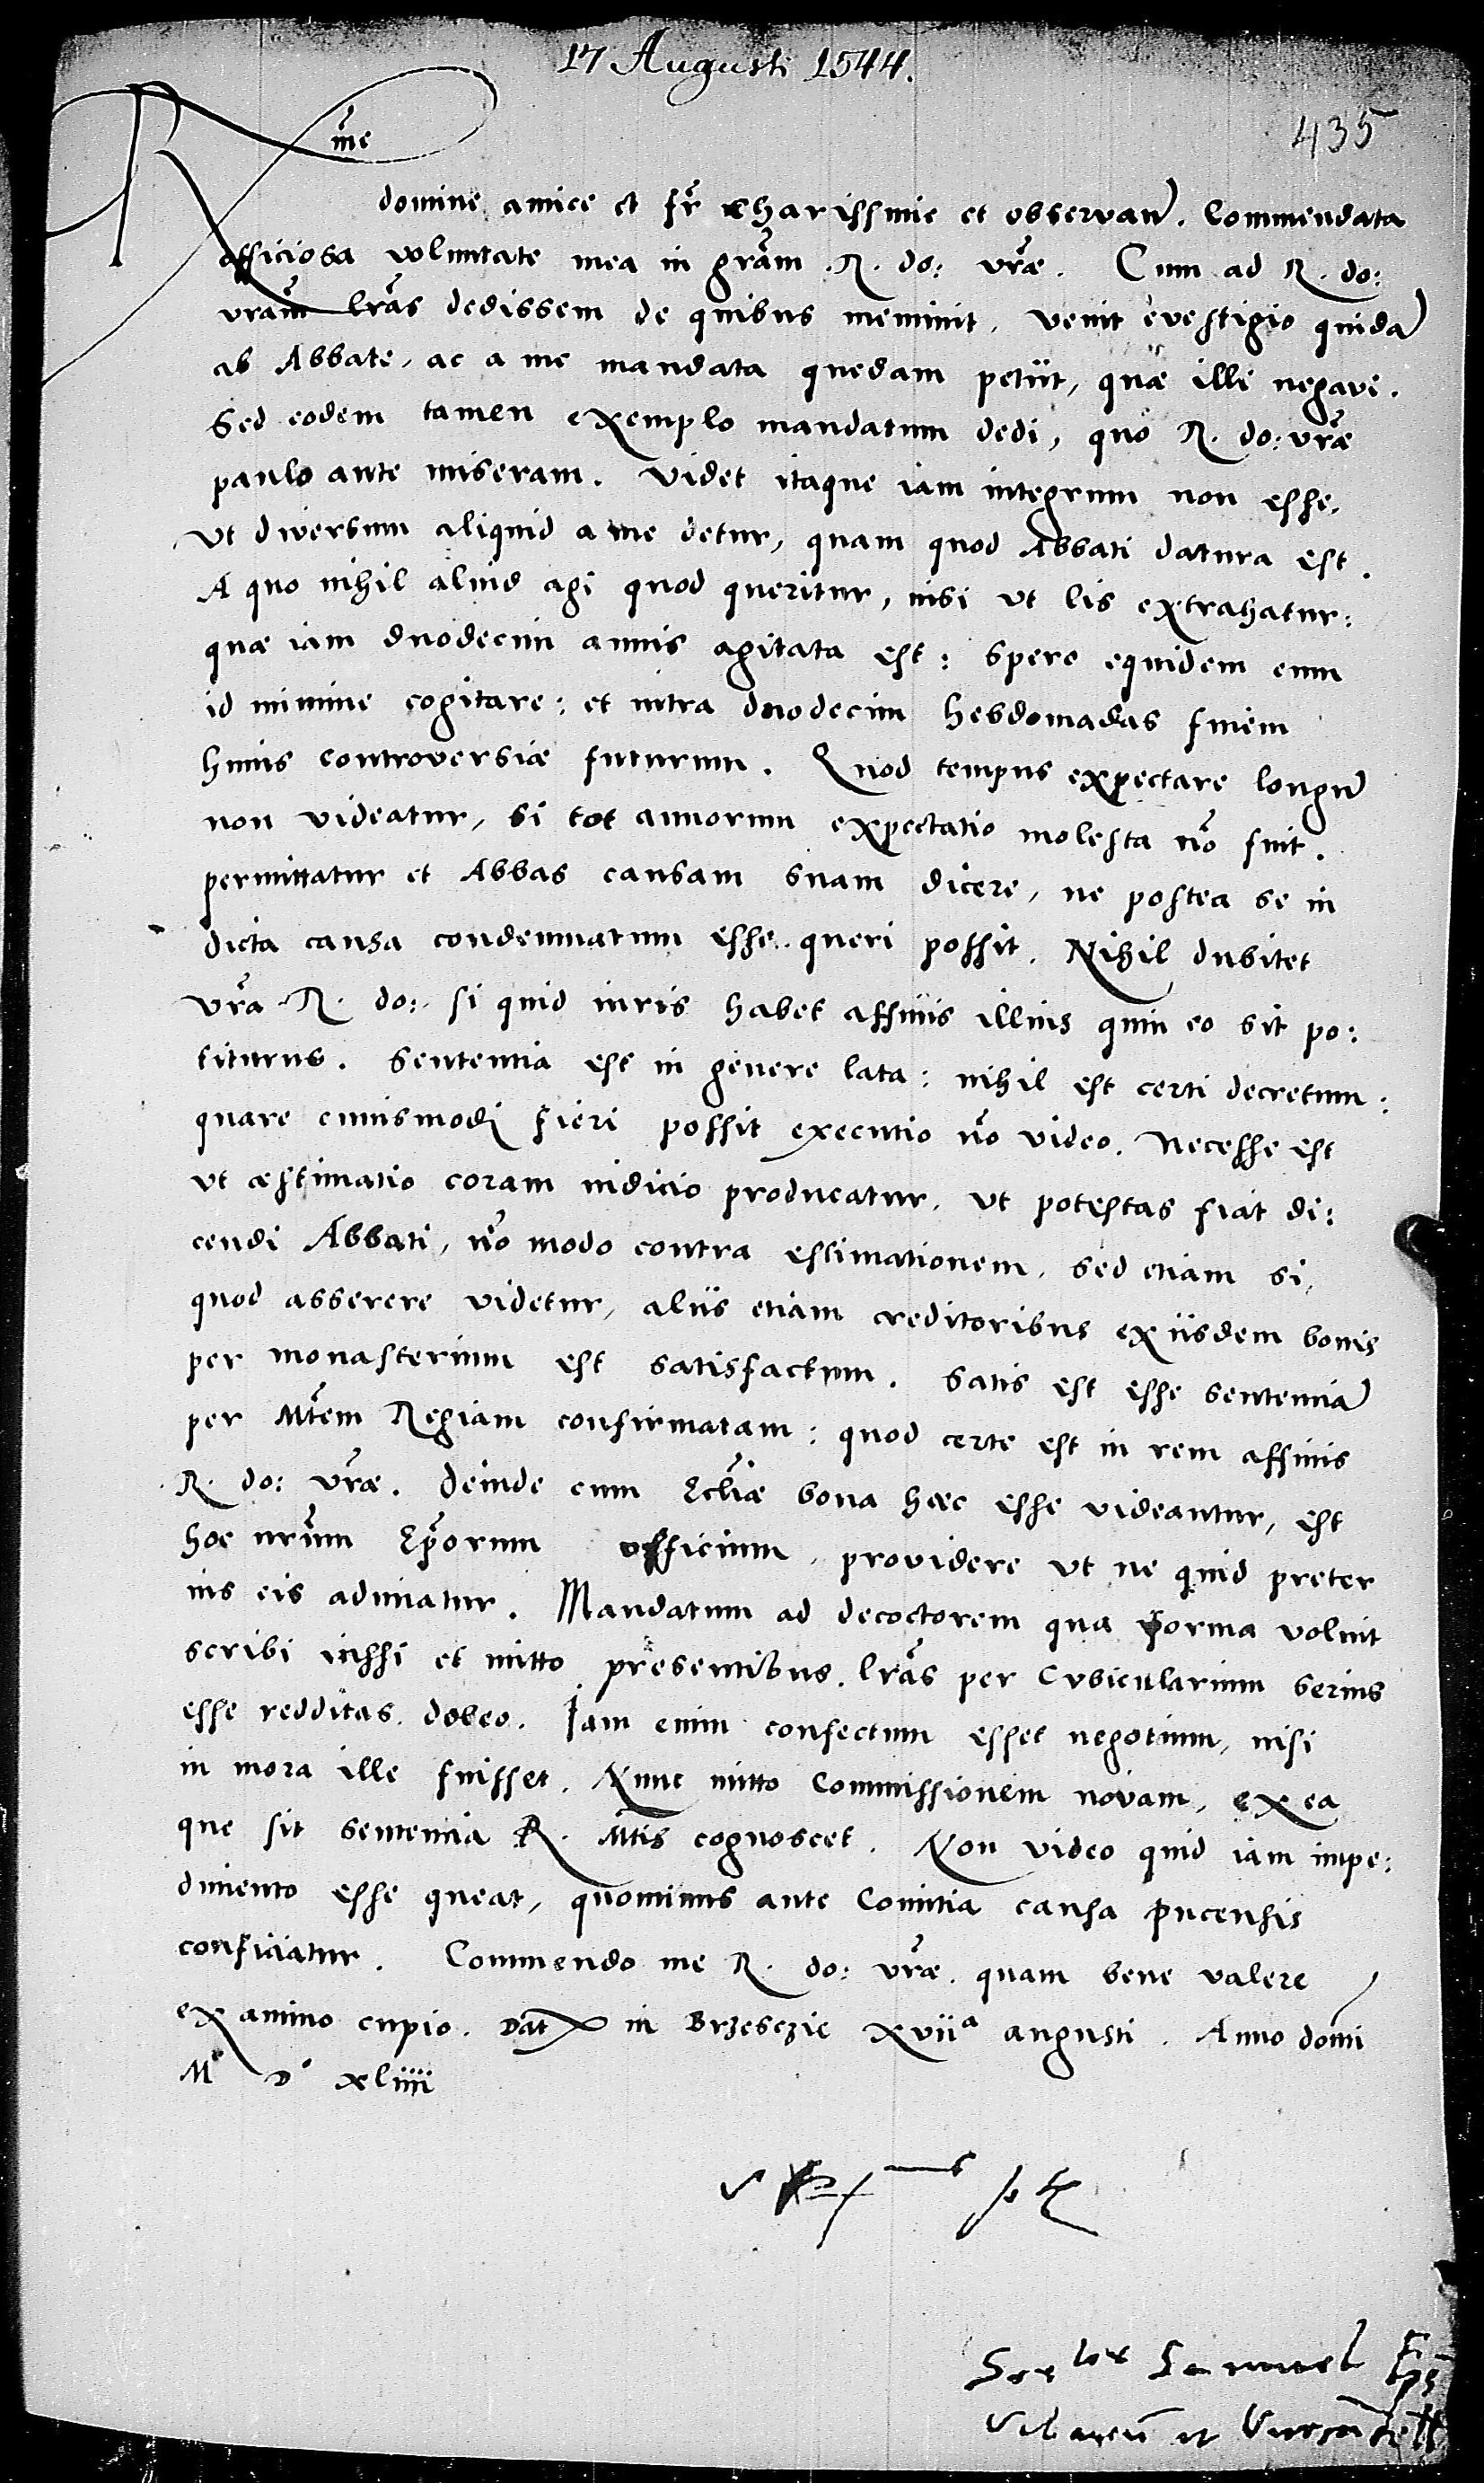 17 Augusti 1544.
435
Rme
domine amice et fr charissime et observan. Commendata
officiosa voluntate mea in gram R. do: vrae. Cum ad R. do:
vram lras dedissem de quibus meminit, venit evestigio quida
ab Abbate, ac a me mandata quedam petiit, quae illi negavi.
Sed eodem tamen exemplo mandatum dedi, quo R. do: vrae
paulo ante miseram. Videt itaque iam integrum non esse,
ut diversum aliquid a me detur, quam quod Abbati datum est.
A quo nihil aliud agi quod queritur, nisi ut lis extrahatur:
quae iam duodecim annis agitata est: spero equidem eum
id minime cogitare: et intra duodecim hebdomadas finem
huius controversiae futurum. Quod tempus expectare longu
non videatur, si tot annorum expectatio molesta no fuit.
permittatur et Abbas causam suam dicere, ne postea se in
dicta causa condemnatum esse queri possit. Nihil dubitet
vra R. do: si quid iuris habet affinis illius quin eo sit po:
titurus. Sententia est in genere lata: nihil est certi decretum:
quare cuiusmodi fieri possit executio no video. Necesse est
ut aestimatio coram iudicio producatur, ut potestas fiat di:
cendi Abbati, no modo contra estimationem, sed etiam si,
quod asserere videtur, aliis etiam creditoribus ex iisdem bonis
per monasterium est satisfactum. Satis est esse sententia
per Mtem Regiam confirmatam: quod certe est in rem affinis
R. do: vrae. Deinde cum Ecliae bona haec esse videantur, est
hoc nrum Eporum officium, providere ut ne quid preter
ius eis adimatur. Mandatum ad decoctorem qua forma voluit
scribi iussi et mitto presentibus. lras per Cubicularium serius
esse redditas doleo. Iam enim confectum esset negotium, nisi
in mora ille fuisset. Nunc mitto Commissionem novam, ex ea
que sit sententia R. Mtis cognoscet. Non video quid iam impe:
dimento esse queat, quominus ante Comitia causa pucensis
conficiatur. Commendo me R. do: vrae. quam bene valere
ex animo cupio. Dat in Brzesczie xviia augusti. Anno domi
Mo Do xliiii
Samuel Eps